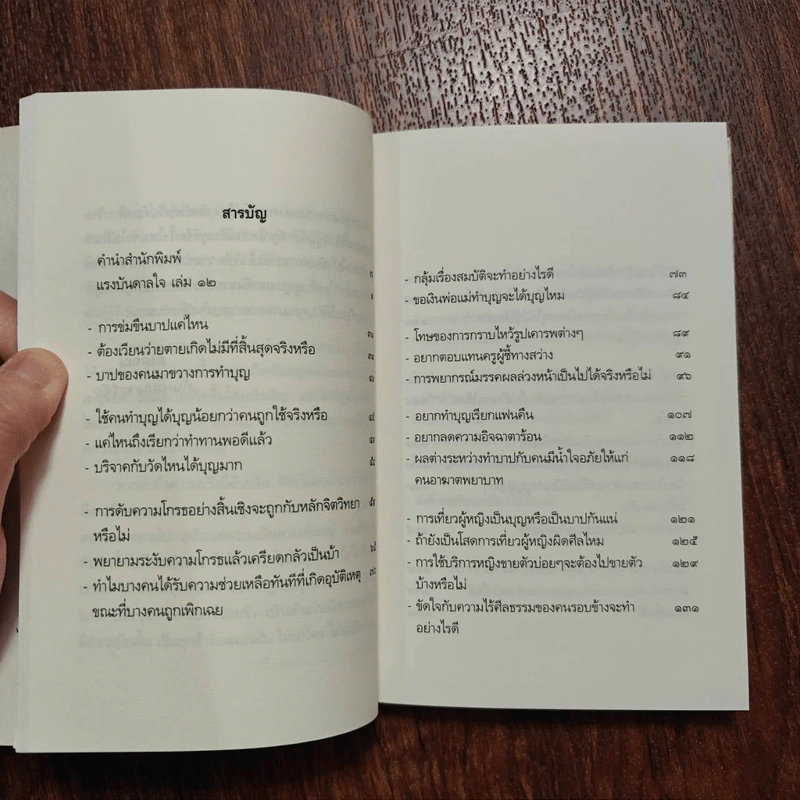 สารบัญ
คำนำสำนักพิมพ์
แรงบันดาลใจ เล่ม ๑๒
- การข่มขืนบาปแค่ไหน
- ต้องเวียนว่ายตายเกิดไม่มีที่สิ้นสุดจริงหรือ
- บาปของคนมาขวางการทำบุญ
- ใช้คนทำบุญได้บุญน้อยกว่าคนถูกใช้จริงหรือ
- แค่ไหนถึงเรียกว่าทำทานพอดีแล้ว
- บริจาคกับวัดไหนได้บุญมาก
- การดับความโกรธอย่างสิ้นเชิงจะถูกกับหลักจิตวิทยา
หรือไม่
- พยายามระงับความโกรธแล้วเครียดกลัวเป็นบ้า
- ทำไมบางคนได้รับความช่วยเหลือทันทีที่เกิดอุบัติเหตุ
ขณะที่บางคนถูกเพิกเฉย
- กลุ้มเรื่องสมบัติจะทำอย่างไรดี ๗๓
- ขอเงินพ่อแม่ทำบุญจะได้บุญไหม ๘๔
- โทษของการกราบไหว้รูปเคารพต่างๆ ๘๙
- อยากตอบแทนครูผู้ชี้ทางสว่าง ๙๑
- การพยากรณ์มรรคผลล่วงหน้าเป็นไปได้จริงหรือไม่ ๙๖
- อยากทำบุญเรียกแฟนคืน ๑๐๗
- อยากลดความอิจฉาตาร้อน ๑๑๒
- ผลต่างระหว่างทำบาปกับคนมีน้ำใจอภัยให้แก่ ๑๑๘
คนอาฆาตพยาบาท
- การเที่ยวผู้หญิงเป็นบุญหรือเป็นบาปกันแน่ ๑๒๑
- ถ้ายังเป็นโสดการเที่ยวผู้หญิงผิดศีลไหม ๑๒๕
- การใช้บริการหญิงขายตัวบ่อยๆจะต้องไปขายตัว ๑๒๙
บ้างหรือไม่
- ขัดใจกับความไร้ศีลธรรมของคนรอบข้างจะทำ ๑๓๑
อย่างไรดี